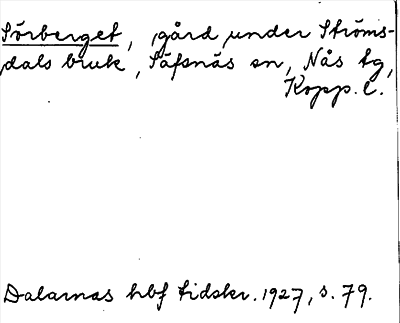 Sörberget, gård under Ströms-
dals bruk, Säfsnäs sn, Nås tg,
Kopp. l.
Dalarnas hbf tidskr. 1927, s. 79.